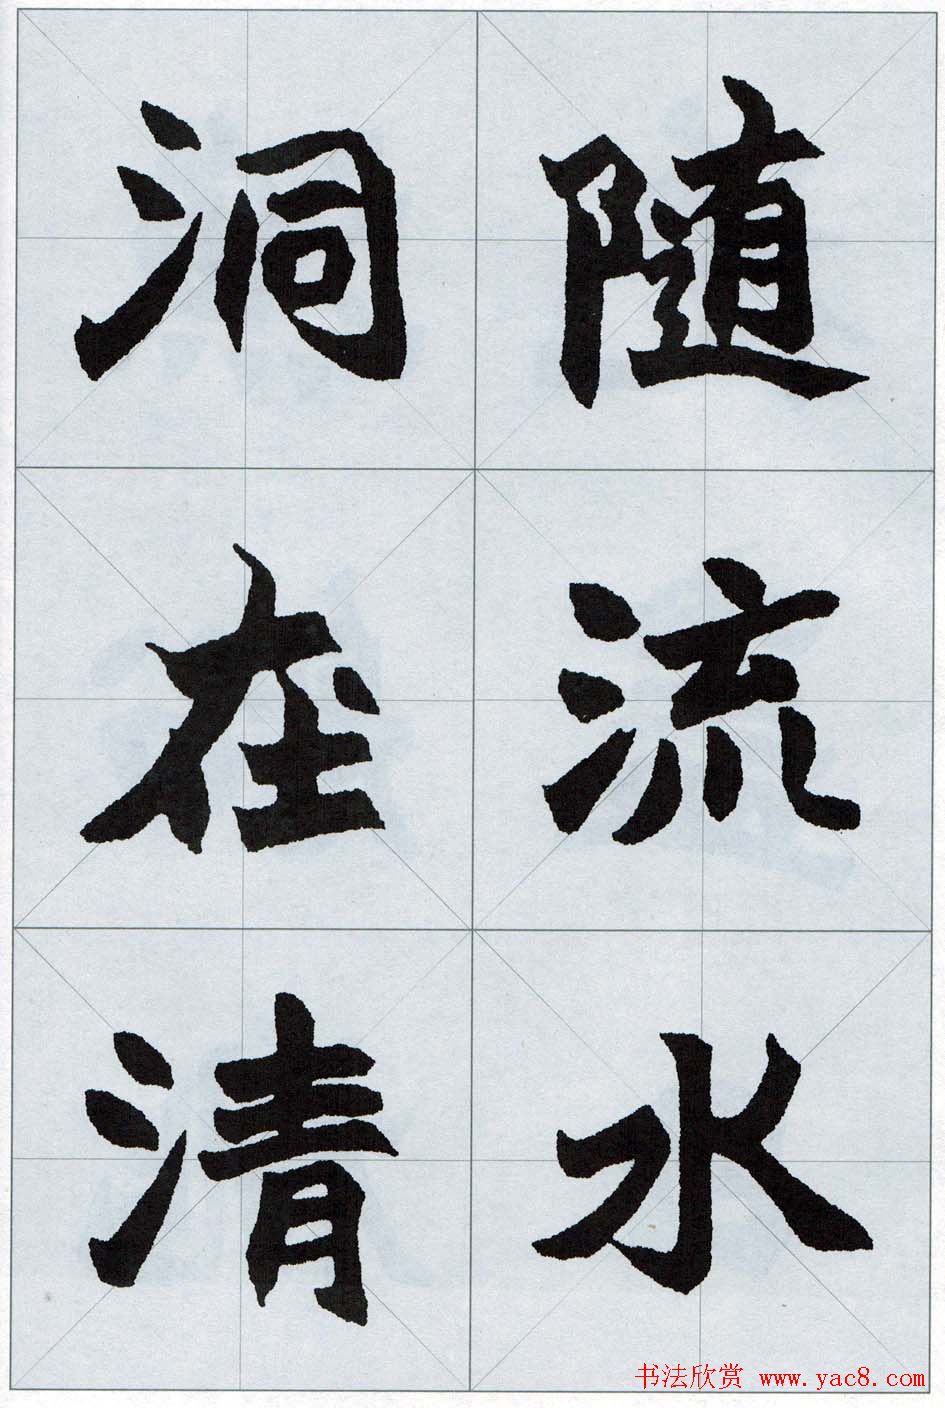 随流水
洞在清
书法欣赏 www.yac8.com